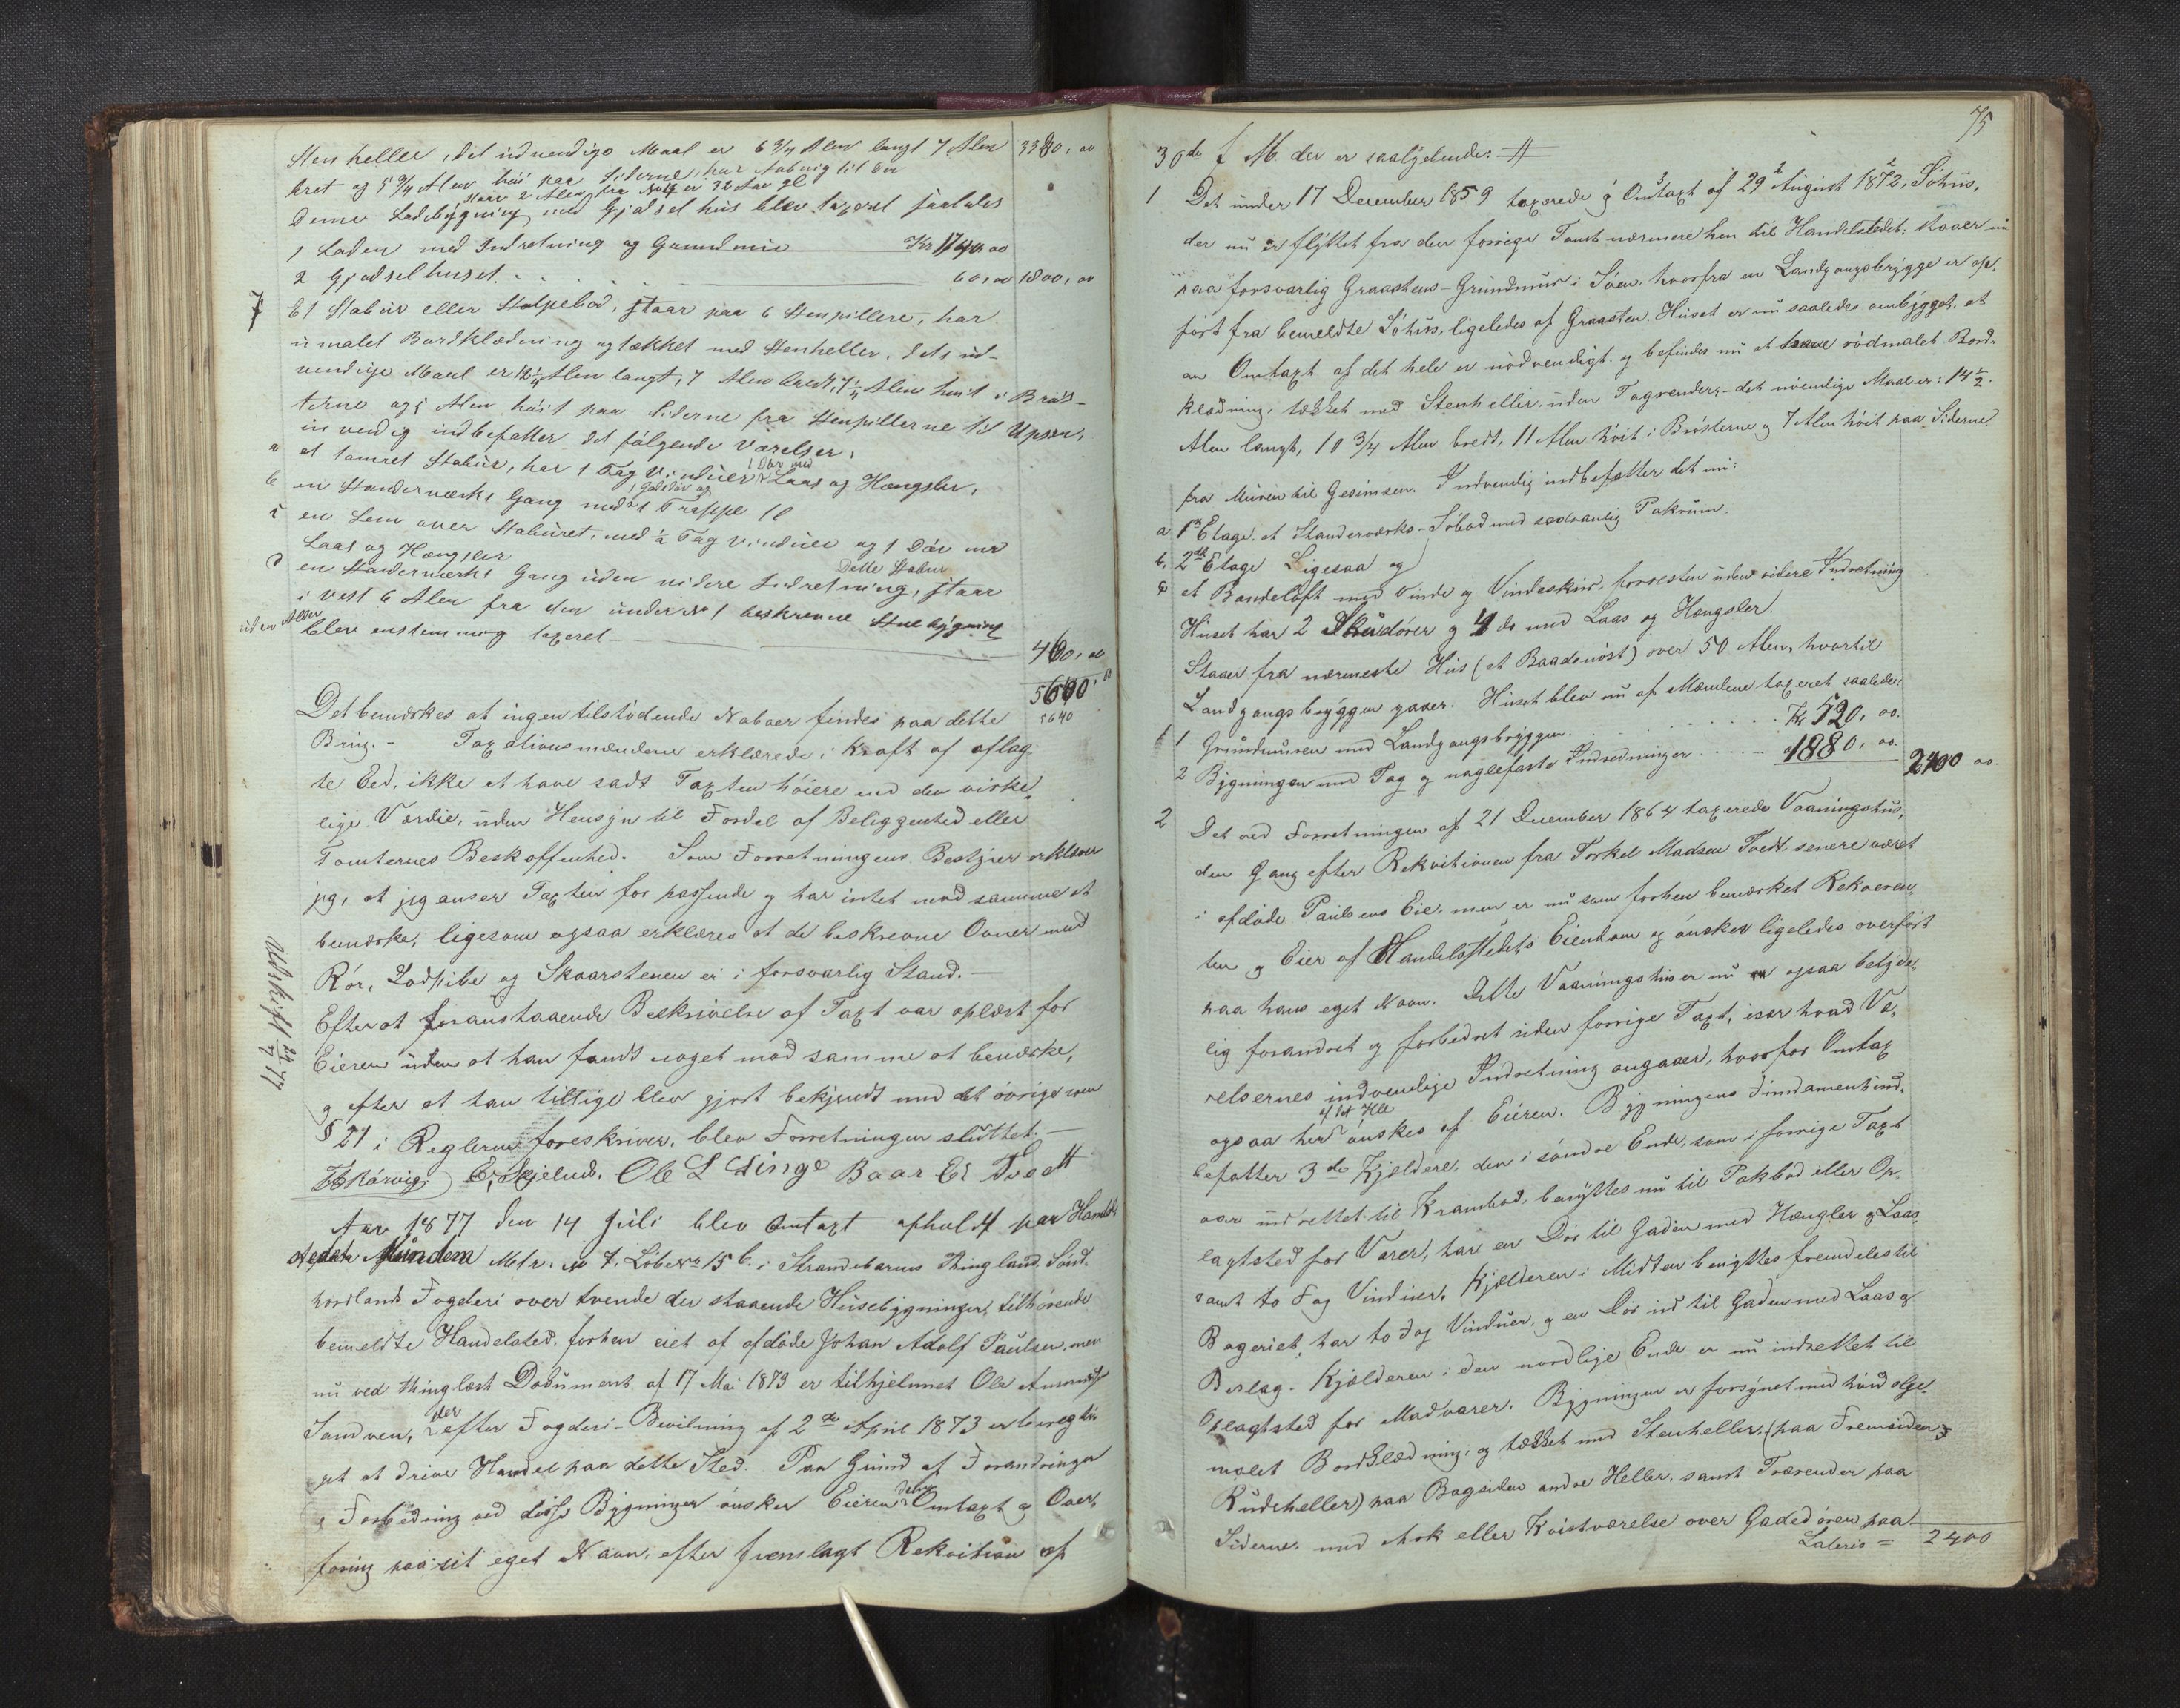 Stenheller, det udvendige Maal er 6 3/4 Alen langt 7 Alen 3380,00
bret og 5 3/4 Alen høi paa Siderne, har Aabning til
staar 2 Alen fra No 4 er 32
Denne Ladebygning med Gjødselhus blev taxeret saaledes
1 Laden med Indretning og Grundmur Kr 1740,00
2 Gjødselhuset 60,00 1800,00
7 Et Stabur eller Stolpebod, staar paa 6 Stenpillere, har
umalet Bordklædning og tækket med Stenheller, dets ud-
vendige Maal er 12 1/4 Alen langt, 7 Alen bredt, 7 1/4 Alen høit i Brøs-
terne og 5 Alen høit paa Siderne fra Stenpillerne til Upsen,
invendig indbefatter det følgende Værelser,
a et tømret Stabur, har 1 Fag Vinduer 1 Dør med Laas og Hængsler,
b en Standerværks Gang med 1 Gadedør og 1 Trappe
c en Lem over Staburet, med 1/2 Fag Vinduer og 1 Dør med
Laas og Hængsler
d en Standerværks Gang uden videre Indretning, Dette Stabur staar
i vest 6 Alen fra den under No 1 beskrevne Stuebygning
blev enstemmig taxeret 460,00
5640,00
5640
Det bemærkes at ingen tilstødende Naboer findes paa dette
Brug. - Taxationsmændene erklærede i Kraft af aflag-
te Eed, ikke at have sadt Taxten høiere end den virke-
lige Værdie, uden Hensyn til Fordel af Beliggenhed eller
Tomternes Beskaffenhed. Som Forretningens Bestyrer erklærer
jeg, at jeg anser Taxten for passende og har intet mod samme at
bemærke, ligesom ogsaa erklæres at de beskrevne Ovner med
Rør, Lodpibe og Skaarstenen er i forsvarlig Stand. -
Efter at foranstaaende Beskrivelse af Taxt var oplæst for
Eieren uden at han fandt noget mod samme at bemærke,
og efter at han tillige blev gjort bekjendt med det øvrige som
§ 21 i Reglerne foreskriver, blev Forretningen sluttet. -
Udskrift 24/7 77
Skarvig E. Skjelnes. Ole L Linge Baar Er Tvedt
Aar 1877 den 14 Juli blev Omtaxt afholdt paa Handels
stedet Mundem Matr. No 7, Løbe No 15 b. i Strandebarms Thinglaud, Sønd-
hordlands Fogderi over tvende der staaende Husebygninger, tilhørende
bemeldte Handelsted, forhen eiet af afdøde Johan Adolf Paulsen, men
nu ved thinglæst Dokument af 17 Mai 1873 er tilhjelmet Ole Amundsen
Sandven, der efter Fogderi-Bevilning af 2de April 1873 er beregti-
get at drive Handel paa dette Sted. Paa Grund af Forandringer
og Forbedring ved disse Bygninger ønsker Eieren denne Omtaxt og Over-
føring paa sit eget Navn, efter fremlagt Rekvition af
75
30de f M. der er saalydende: #
1 Det under 17 December 1859 taxerede og Omtaxt af 29 August 1872, Søhus,
der nu er flyttet fra den forrige Tomt nærmere hen til Handelstedet, staaer nu
paa forsvarlig Graastens-Grundmur i Søen, hvorfra en Landgangsbrygge er op-
ført fra bemeldte Søhus, ligeledes af Graasten. Huset er nu saaledes ombygget, at
en Omtaxt af det hele er nødvendigt, og befindes nu at have rødmalet Bord-
klædning, tækket med Stenheller, uden Tagrender, - det udvendige Maal er: 14 1/2.
Alen langt, 10 3/4 Alen bredt, 11 Alen høit i Brøsterne og 7 Alen høit paa Siderne
fra Muren til Gesimsen. Indvendig indbefatter det nu:
a 1ste Etage, et Standerværks-Søbod med sædvanlig Pakrum.
b. 2den Etage Ligesaa og
c et Bandeloft med Vinde og Vindeskur, forresten uden videre Indretning
Huset har 2 Skuddører og 4 do med Laas og Hængsler.
Staaer fra nærmeste Hus (et Baadenøst) over 50 Alen, hvortil
Landgangsbryggen gaaer. Huset blev nu af Mændene taxeret saaledes:
1 Grundmuren med Landgangsbryggen . . . . Kr 520, 00.
2 Bygningen med Tag og naglefaste Indredninger . . . . 1880, 00. 2400 00.
2 Det ved Forretningen af 21 December 1864 taxerede Vaaningshus,
den Gang efter Rekvitionen fra Torkel Madsen Tvedt, senere været
i afdøde Paulsens Eie, men er nu som forhen bemærket Rekveren-
ten og Eier af Handelsstedets Eiendom og ønsker ligeledes overført
paa hans eget Navn. Dette Vaaningshus er nu ogsaa betyde-
lig forandret og forbedret siden forrige Taxt, især hvad Væ-
relsernes indvendige Indretning angaaer, hvorfor Omtax
ogsaa her ønskes af Eieren. Bygningens Fundament ind-
befatter 3de Kjeldere, den i søndre Ende, som i forrige Taxt
var indrettet til Krambod, benyttes nu til Pakbod eller Op-
lagtsted for Varer, har en Dør til Gaden med Hængler og Laas,
samt to Fag Vinduer. Kjælderen i Midten benyttes fremdeles til
Bageriet, har to Fag Vinduer, og en Dør ud til Gaden med Laas og
Beslag. Kjælderen i den nordlige Ende er nu indrettet til
Oplagtsted for Madvarer. Bygningen er forsynet med hvid olje-
malet Bordklædning, og tækket med Stenheller, (paa Fremsiden
Rudeheller) paa Bagsiden andre Heller, samt Trærender paa
Siderne, med Ark eller Kvistværelse over Gadedøren paa
Lateris = 2400